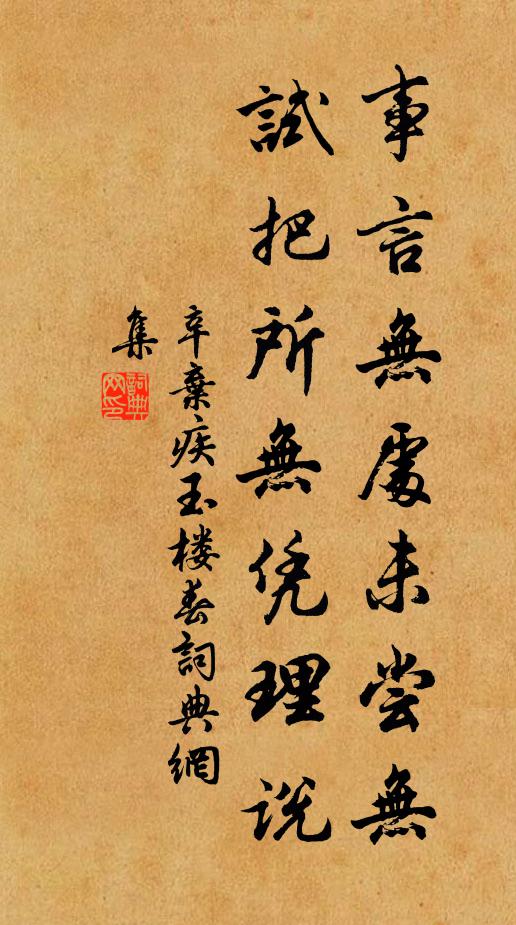 事言無處未嘗無
試把所無凭理說
辛棄疾玉楼春詞典網
集
詞典網印